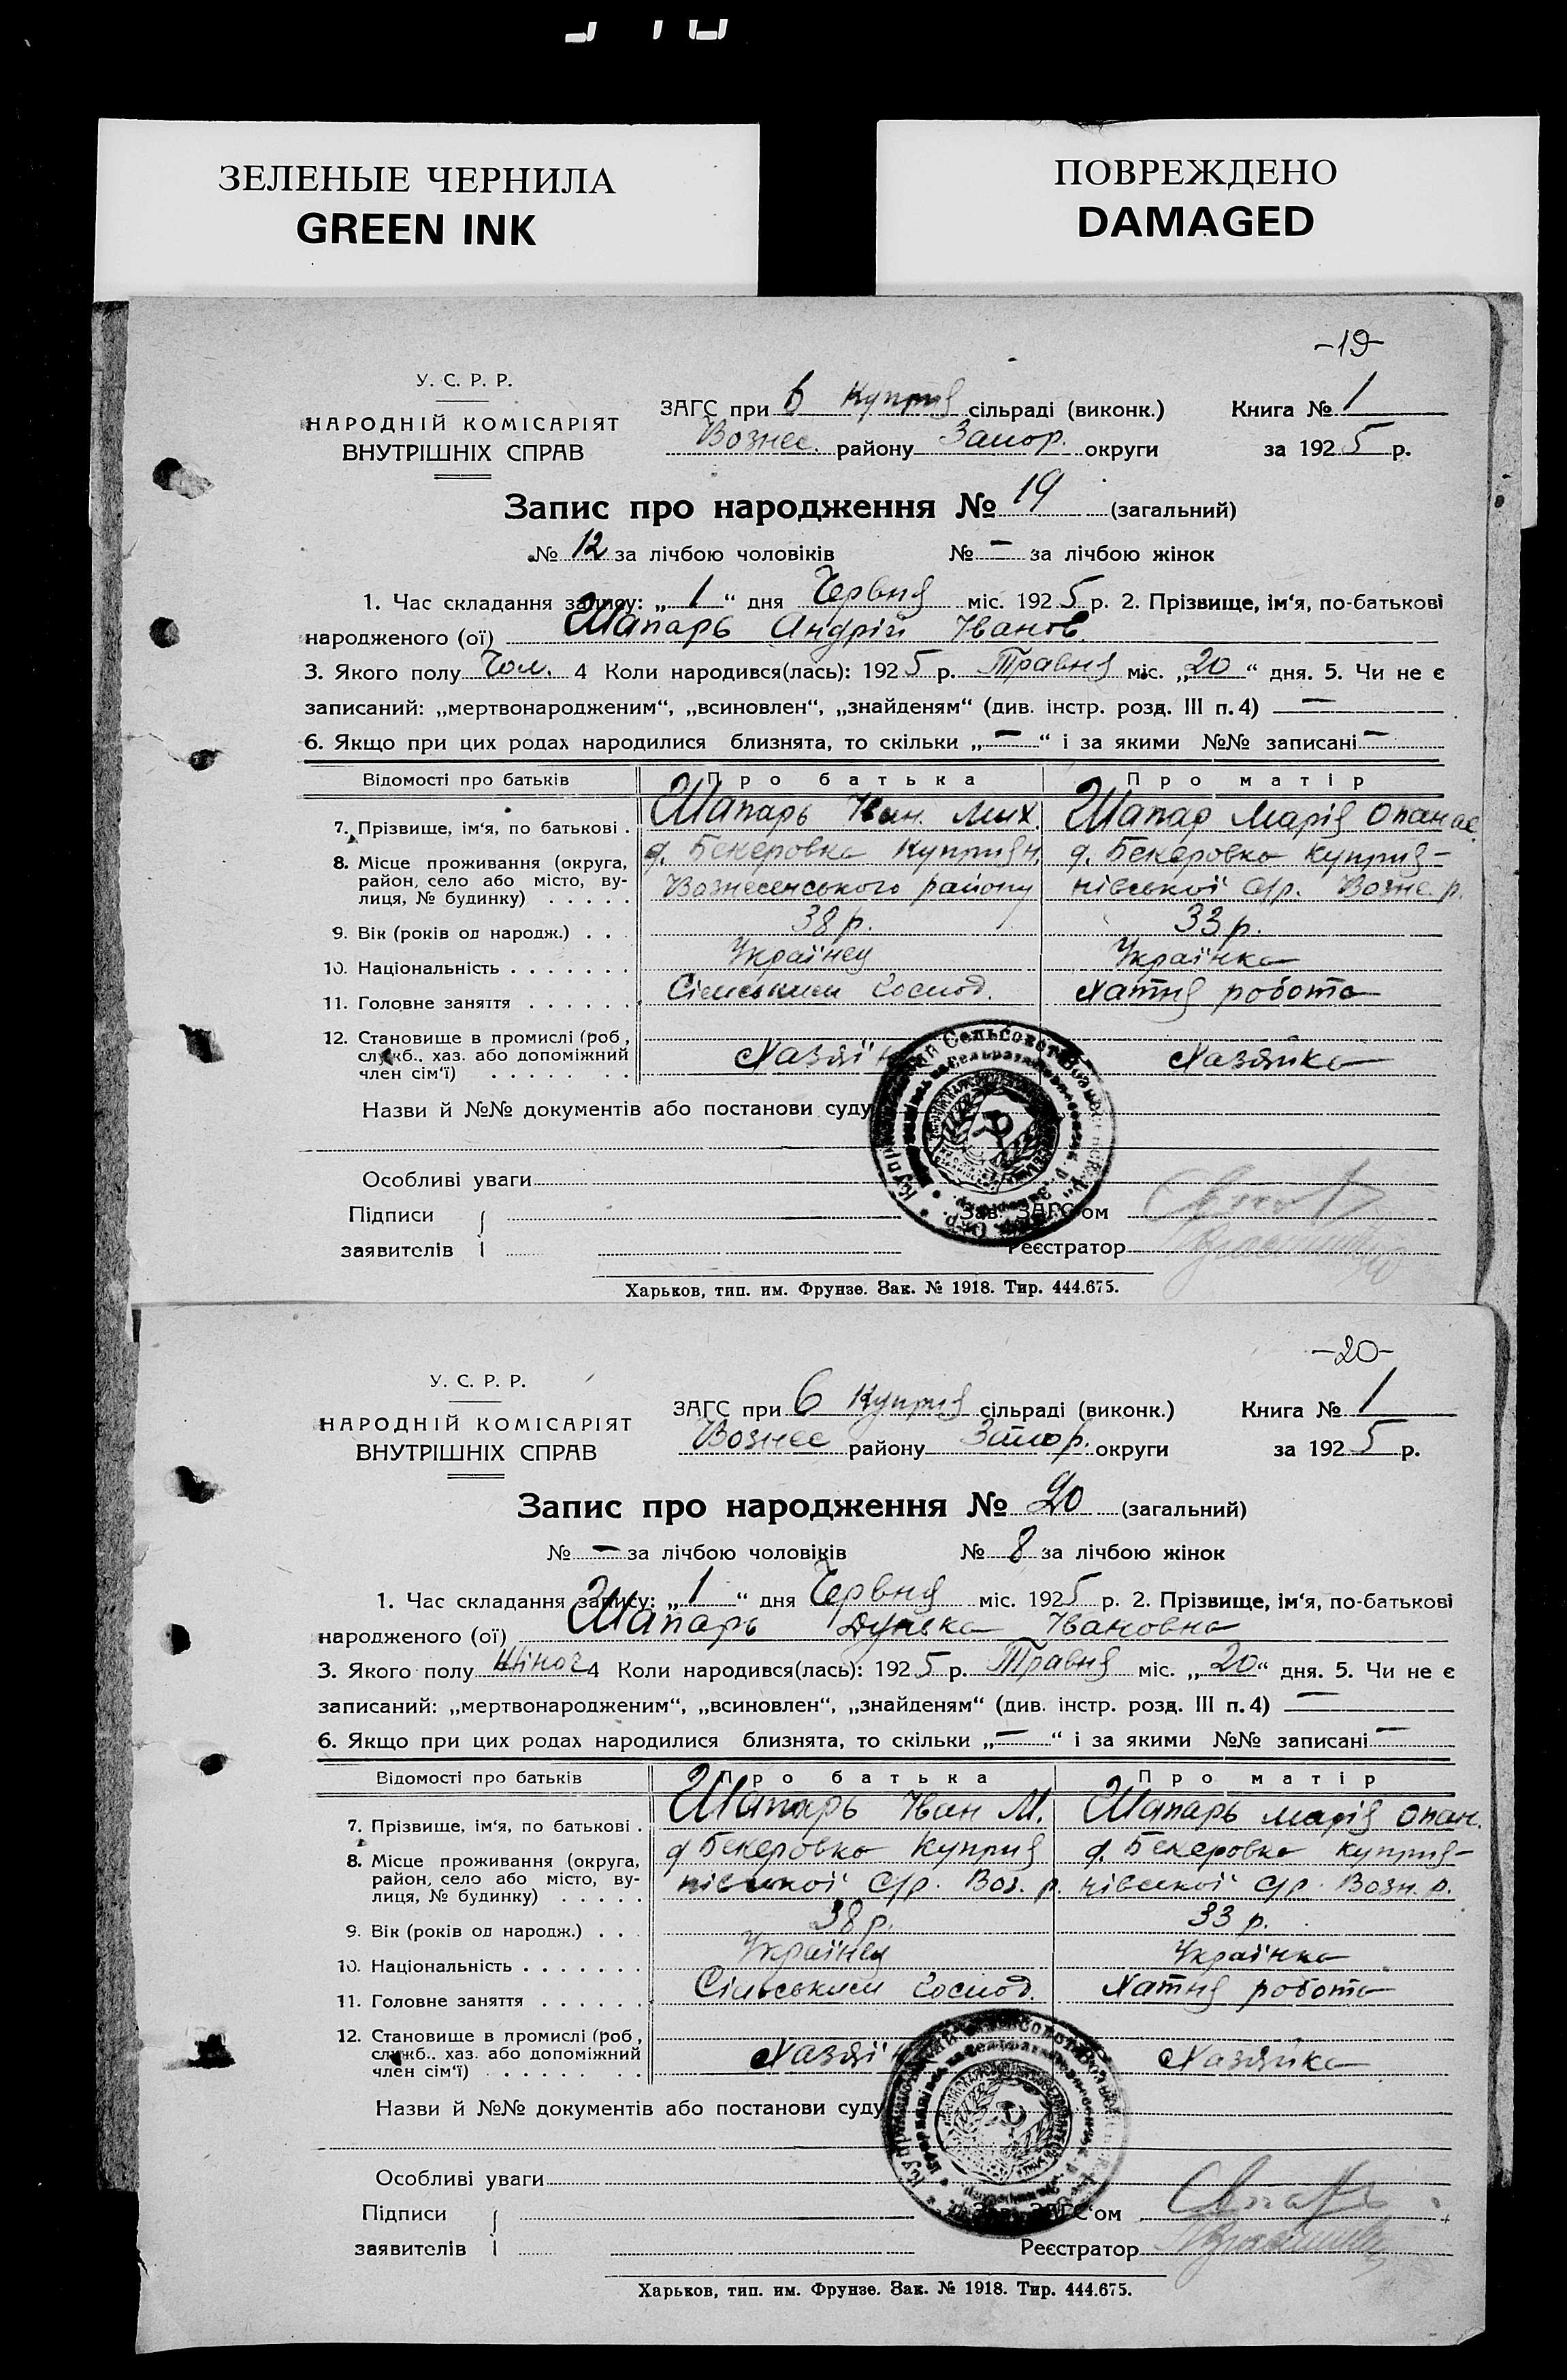 ЗЕЛЕНЫЕ ЧЕРНИЛА
GREEN INK
ПОВРЕЖДЕНО
DAMAGED
-19-
У. С. Р. Р.
НАРОДНІЙ КОМІСАРІЯТ
ВНУТРІШНІХ СПРАВ
ЗАГС при в Куприя сільраді (виконк.) Книга № 1
Вознес. району Запор. округи за 1925 р.
Запис про народження № 19 (загальний)
№ 12 за лічбою чоловіків № — за лічбою жінок
1. Час складання запису: „ 1 “ дня Червня міс. 1925 р. 2. Прізвище, ім‘я, по-батькові
народженого (ої) Шапарь Андрій Іванов.
3. Якого полу Чол. 4 Коли народився(лась): 1925 р. Травня міс. „20“ дня. 5. Чи не є
записаний: „мертвонародженим“, „всиновлен“, „знайденям“ (див. інстр. розд. III п. 4) —
6. Якщо при цих родах народилися близнята, то скільки „—“ і за якими №№ записані —
Відомості про батьків Про батька Про матір
7. Прізвище, ім‘я, по батькові . Шапарь Іван. Мих. Шапар Марія Опанас
8. Місце проживання (округа, район, село або місто, вулиця, № будинку) . . . . . д. Бекеровка Куприян. д. Бекеровка Куприя-
Вознесенського району нівської с/р. Возне. р.
9. Вік (років од народж.) . . . 38 р. 33 р.
10. Національність . . . . . . . Українец Українка
11. Головне заняття . . . . . . Сільським господ. Хатня робота
12. Становище в промислі (роб, служб.. хаз. або допоміжний член сім‘ї) . . . . . . . Хазяїн Хазяйка
Назви й №№ документів або постанови суду
Особливі уваги
Підписи
заявителів
Зав. ЗАГС‘ом
Реєстратор
Харьков, тип. им. Фрунзе. Зак. № 1918. Тир. 444.675.
-20-
У. С. Р. Р.
НАРОДНІЙ КОМІСАРІЯТ
ВНУТРІШНІХ СПРАВ
ЗАГС при в Куприя сільраді (виконк.) Книга № 1
Вознес району Запор. округи за 1925 р.
Запис про народження № 20 (загальний)
№ — за лічбою чоловіків № 8 за лічбою жінок
1. Час складання запису: „ 1 “ дня Червня міс. 1925 р. 2. Прізвище, ім‘я, по-батькові
народженого (ої) Шапарь Дунька Івановна
3. Якого полу Жіноч 4 Коли народився(лась): 1925 р. Травня міс. „20“ дня. 5. Чи не є
записаний: „мертвонародженим“, „всиновлен“, „знайденям“ (див. інстр. розд. III п. 4) —
6. Якщо при цих родах народилися близнята, то скільки „—“ і за якими №№ записані —
Відомості про батьків Про батька Про матір
7. Прізвище, ім‘я, по батькові . Шапарь Іван М. Шапарь Марія Опан.
8. Місце проживання (округа, район, село або місто, вулиця, № будинку) . . . . . д Бекеровка Куприя д. Бекеровка Куприя-
нівської с/р. Воз. р. нівської с/р. Возн. р.
9. Вік (років од народж.) . . . 38 р. 33 р.
10. Національність . . . . . . . Українец Українка
11. Головне заняття . . . . . . Сільським господ. Хатня робота
12. Становище в промислі (роб, служб.. хаз. або допоміжний член сім‘ї) . . . . . . . Хазяїн Хазяйка
Назви й №№ документів або постанови суду
Особливі уваги
Підписи
заявителів
Зав. ЗАГС‘ом
Реєстратор
Харьков, тип. им. Фрунзе. Зак. № 1918. Тир. 444.675.